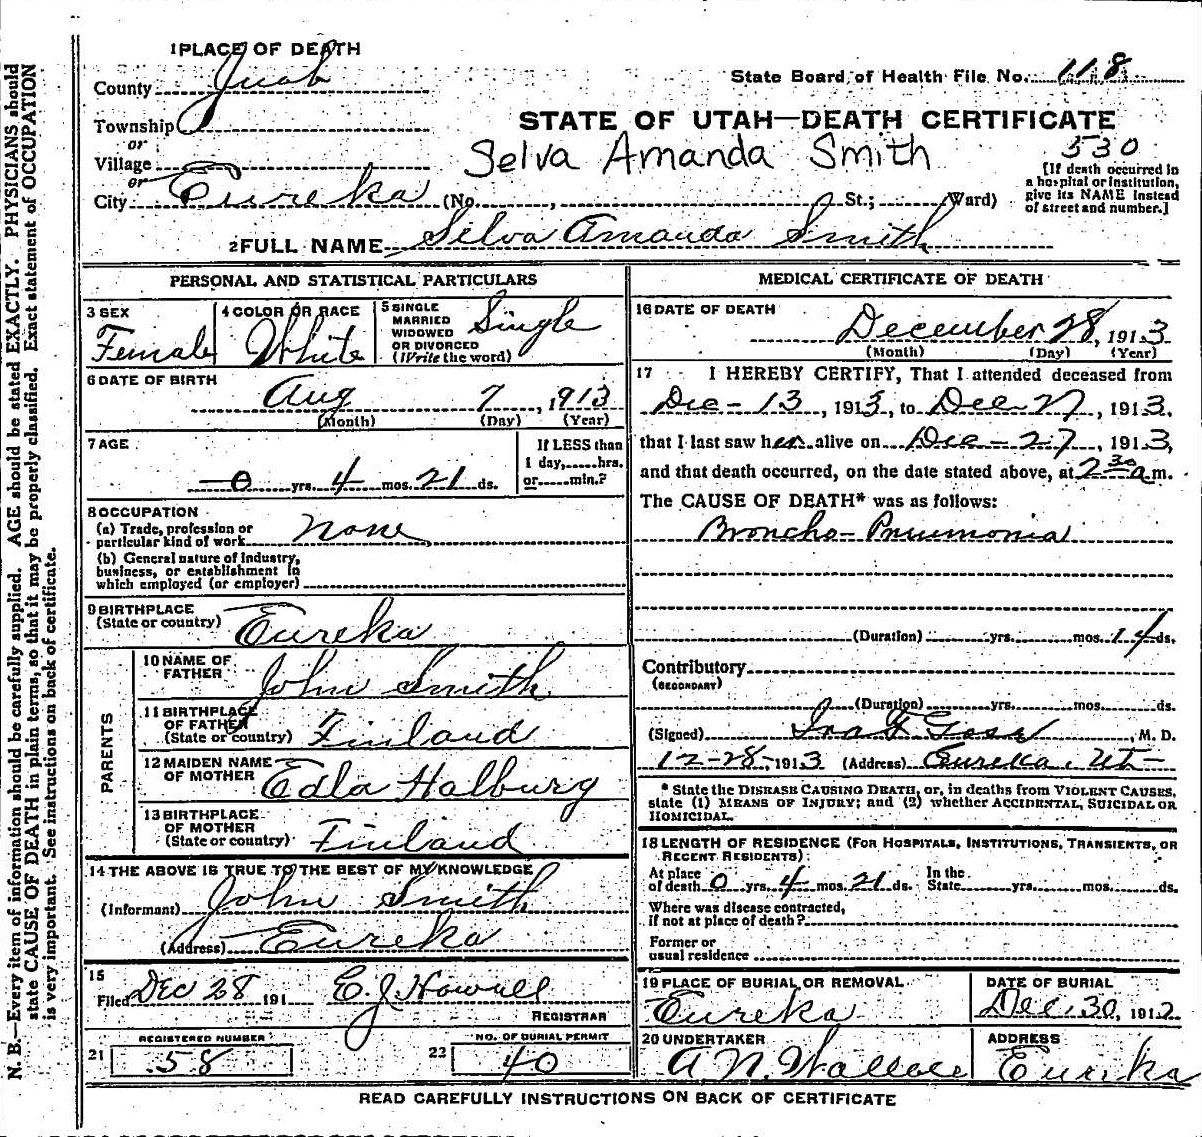 N. B.—Every item of information should be carefully supplied. AGE should be stated EXACTLY. PHYSICIANS should
state CAUSE OF DEATH in plain terms, so that it may be properly classified. Exact statement of OCCUPATION
is very important. See instructions on back of certificate.
1 PLACE OF DEATH
County Juab
State Board of Health File No. 118
Township
or
Village
or
City Eureka (No. , St.; Ward)
STATE OF UTAH—DEATH CERTIFICATE
Selva Amanda Smith
530
[If death occurred in
a hospital or institution,
give its NAME instead
of street and number.]
2 FULL NAME Selva Amanda Smith
PERSONAL AND STATISTICAL PARTICULARS
3 SEX
Female
4 COLOR OR RACE
White
5 SINGLE
MARRIED
WIDOWED
OR DIVORCED
(Write the word)
Single
6 DATE OF BIRTH
Aug 7, 1913
(Month) (Day) (Year)
7 AGE
0 yrs. 4 mos. 21 ds.
If LESS than
1 day, hrs.
or min.?
8 OCCUPATION
(a) Trade, profession or
particular kind of work None
(b) General nature of industry,
business, or establishment in
which employed (or employer)
9 BIRTHPLACE
(State or country) Eureka
PARENTS
10 NAME OF
FATHER John Smith
11 BIRTHPLACE
OF FATHER
(State or country) Finland
12 MAIDEN NAME
OF MOTHER Edla Halburg
13 BIRTHPLACE
OF MOTHER
(State or country) Finland
14 THE ABOVE IS TRUE TO THE BEST OF MY KNOWLEDGE
(Informant) John Smith
(Address) Eureka
15
Filed Dec 28 191 E. J. Howell
REGISTRAR
REGISTERED NUMBER
21 58
NO. OF BURIAL PERMIT
22 40
MEDICAL CERTIFICATE OF DEATH
16 DATE OF DEATH
December 28, 1913
(Month) (Day) (Year)
17 I HEREBY CERTIFY, That I attended deceased from
Dec - 13, 1913, to Dec - 27, 1913.
that I last saw her alive on Dec - 27, 1913,
and that death occurred, on the date stated above, at 2 30 a m.
The CAUSE OF DEATH* was as follows:
Broncho-Pneumonia
(Duration) yrs. mos. 14 ds.
Contributory
(SECONDARY)
(Duration) yrs. mos. ds.
(Signed) Ira F. , M. D.
12-28-1913 (Address) Eureka, Ut-
* State the DISEASE CAUSING DEATH, or, in deaths from VIOLENT CAUSES,
state (1) MEANS OF INJURY; and (2) whether ACCIDENTAL, SUICIDAL OR
HOMICIDAL.
18 LENGTH OF RESIDENCE (FOR HOSPITALS, INSTITUTIONS, TRANSIENTS, OR
RECENT RESIDENTS)
At place
of death 0 yrs. 4 mos. 21 ds.
In the
State yrs. mos. ds.
Where was disease contracted,
if not at place of death?
Former or
usual residence
19 PLACE OF BURIAL OR REMOVAL
Eureka
DATE OF BURIAL
Dec. 30, 1912
20 UNDERTAKER
A. N. Wallace
ADDRESS
Eureka
READ CAREFULLY INSTRUCTIONS ON BACK OF CERTIFICATE